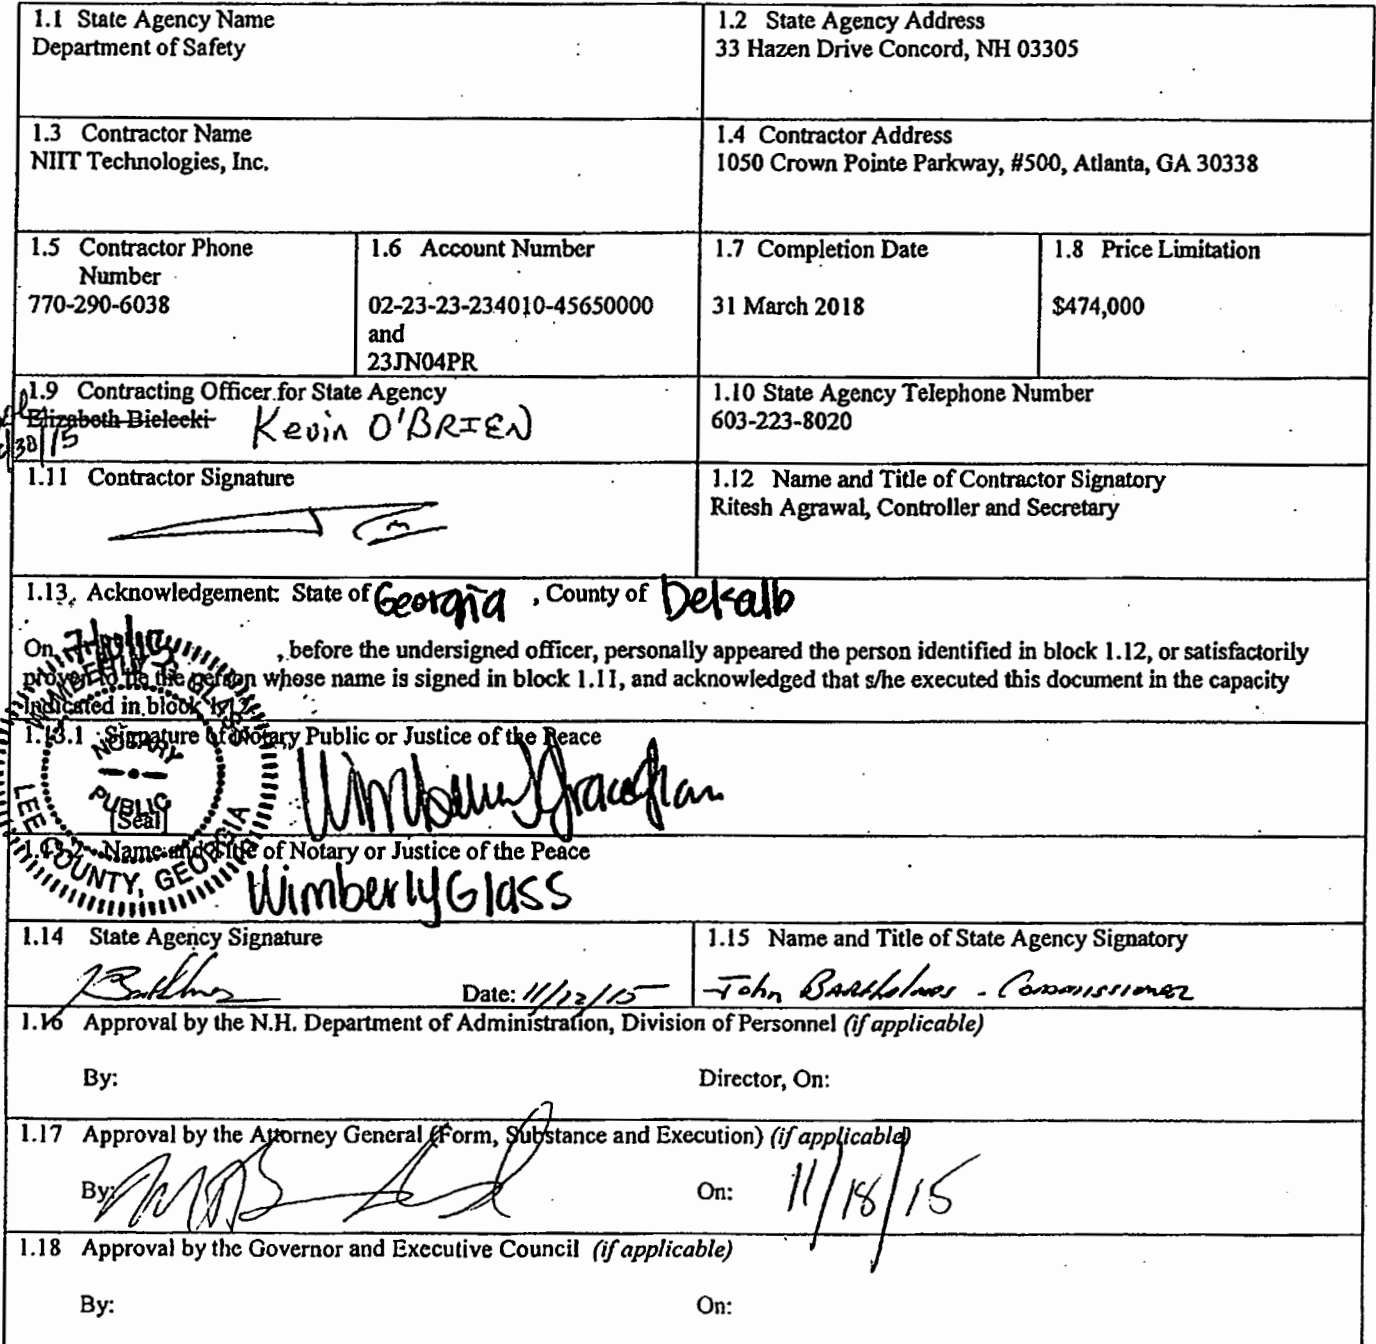 1.1 State Agency Name
Department of Safety
1.2 State Agency Address
33 Hazen Drive Concord, NH 03305
1.3 Contractor Name
NIIT Technologies, Inc.
1.4 Contractor Address
1050 Crown Pointe Parkway, #500, Atlanta, GA 30338
1.5 Contractor Phone
Number
770-290-6038
1.6 Account Number
02-23-23-234010-45650000
and
23JN04PR
1.7 Completion Date
31 March 2018
1.8 Price Limitation
$474,000
1.9 Contracting Officer for State Agency
Elizabeth Bielecki Kevin O'BRIEN
30/15
1.10 State Agency Telephone Number
603-223-8020
1.11 Contractor Signature
1.12 Name and Title of Contractor Signatory
Ritesh Agrawal, Controller and Secretary
1.13. Acknowledgement: State of Georgia , County of Dekalb
On , before the undersigned officer, personally appeared the person identified in block 1.12, or satisfactorily
proven to be the person whose name is signed in block 1.11, and acknowledged that s/he executed this document in the capacity
indicated in block 1.12.
1.13.1 Signature of Notary Public or Justice of the Peace
NOTARY
PUBLIC
[Seal]
LEE COUNTY, GEORGIA
1.13.2 Name and Title of Notary or Justice of the Peace
Wimberly Glass
1.14 State Agency Signature
Date: 11/12/15
1.15 Name and Title of State Agency Signatory
John Barthelmes - Commissioner
1.16 Approval by the N.H. Department of Administration, Division of Personnel (if applicable)
By: Director, On:
1.17 Approval by the Attorney General (Form, Substance and Execution) (if applicable)
By: On: 11/18/15
1.18 Approval by the Governor and Executive Council (if applicable)
By: On: